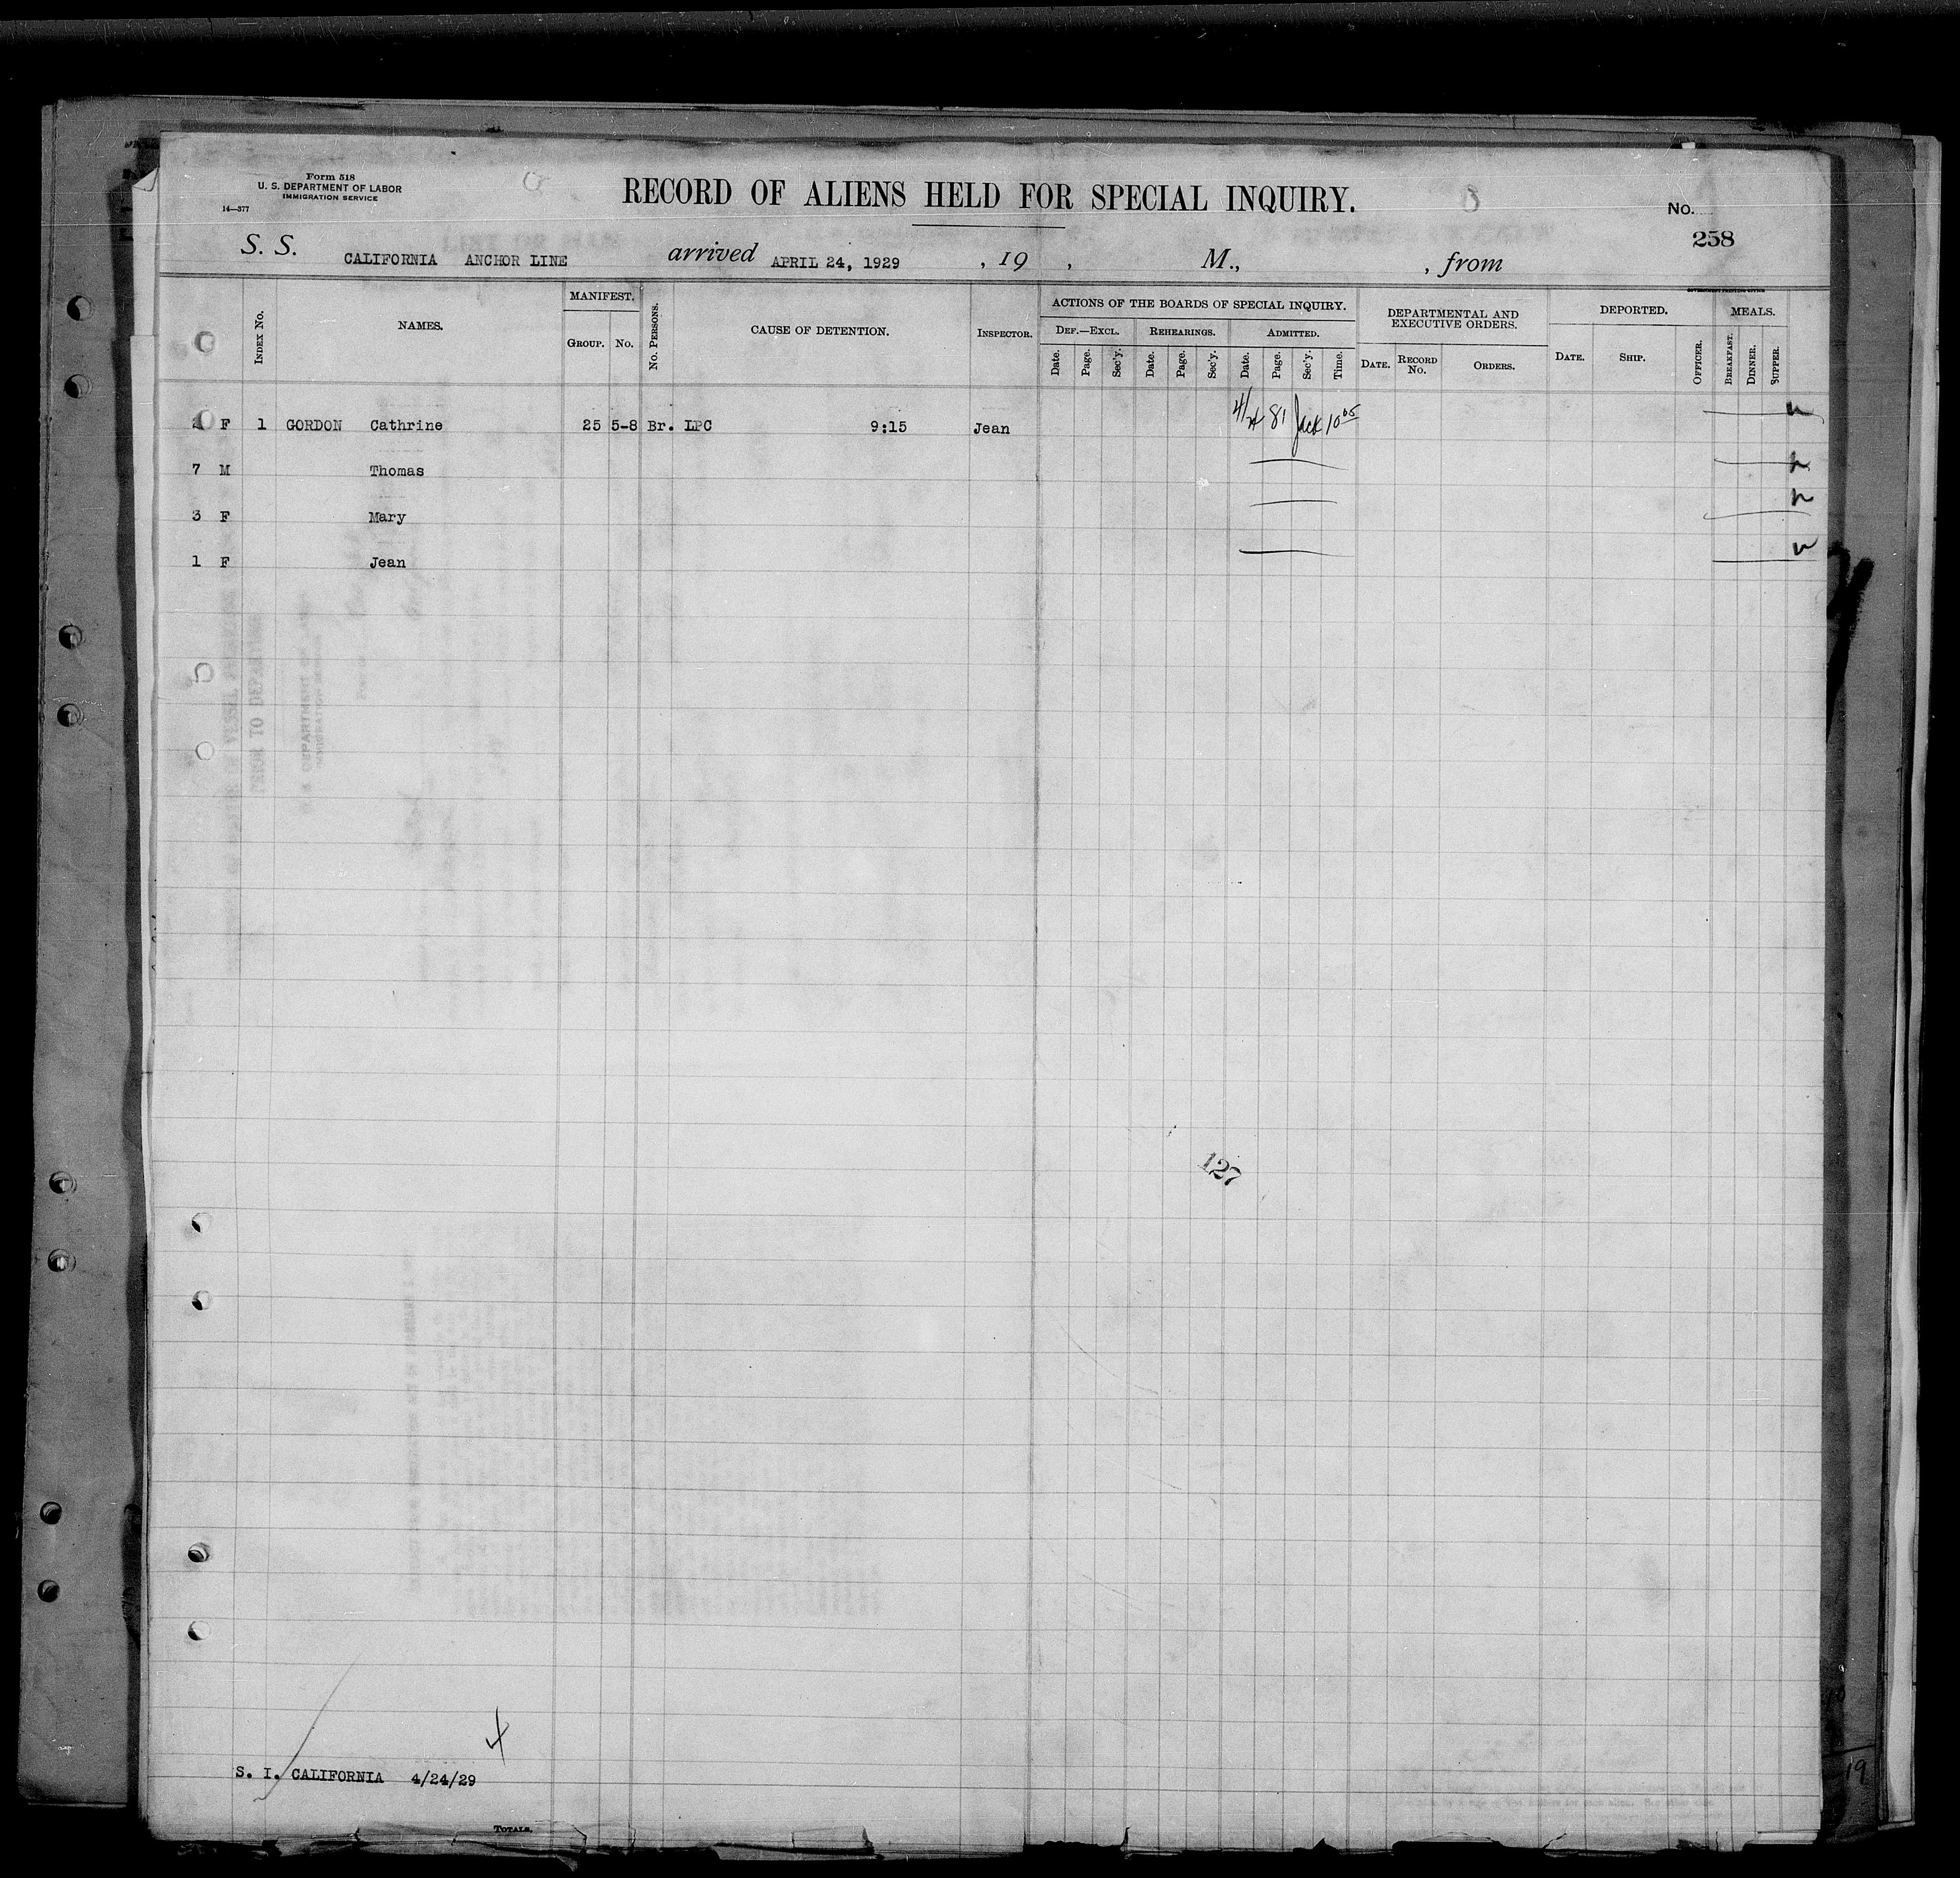 Form 518
U. S. DEPARTMENT OF LABOR
IMMIGRATION SERVICE
14—377
RECORD OF ALIENS HELD FOR SPECIAL INQUIRY.
No.
258
S. S. CALIFORNIA ANCHOR LINE arrived APRIL 24, 1929 , 19 , M., , from
GOVERNMENT PRINTING OFFICE
INDEX No. NAMES. MANIFEST. GROUP. No. No. PERSONS. CAUSE OF DETENTION. INSPECTOR.
ACTIONS OF THE BOARDS OF SPECIAL INQUIRY. DEF.—EXCL. REHEARINGS. ADMITTED.
Date. Page. Sec'y. Date. Page. Sec'y. Date. Page. Sec'y. Time.
DEPARTMENTAL AND EXECUTIVE ORDERS. DATE. RECORD No. ORDERS.
DEPORTED. DATE. SHIP. OFFICER.
MEALS. BREAKFAST. DINNER. SUPPER.
F 1 GORDON Cathrine 25 5-8 Br. LPC 9:15 Jean 4/24 81 Jack 10 05
7 M Thomas
3 F Mary
1 F Jean
127
S. I. CALIFORNIA 4/24/29
TOTALS.
19